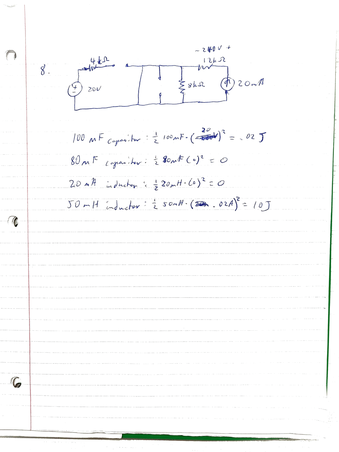 8.
4kΩ
20V
- 240V +
12kΩ
8kΩ
20mA
100 mF capacitor : 1/2 100mF · (20)² = .02 J
80mF capacitor : 1/2 80mF (0)² = 0
20 mH inductor : 1/2 20mH · (0)² = 0
50 mH inductor : 1/2 50mH · (.02A)² = 10J